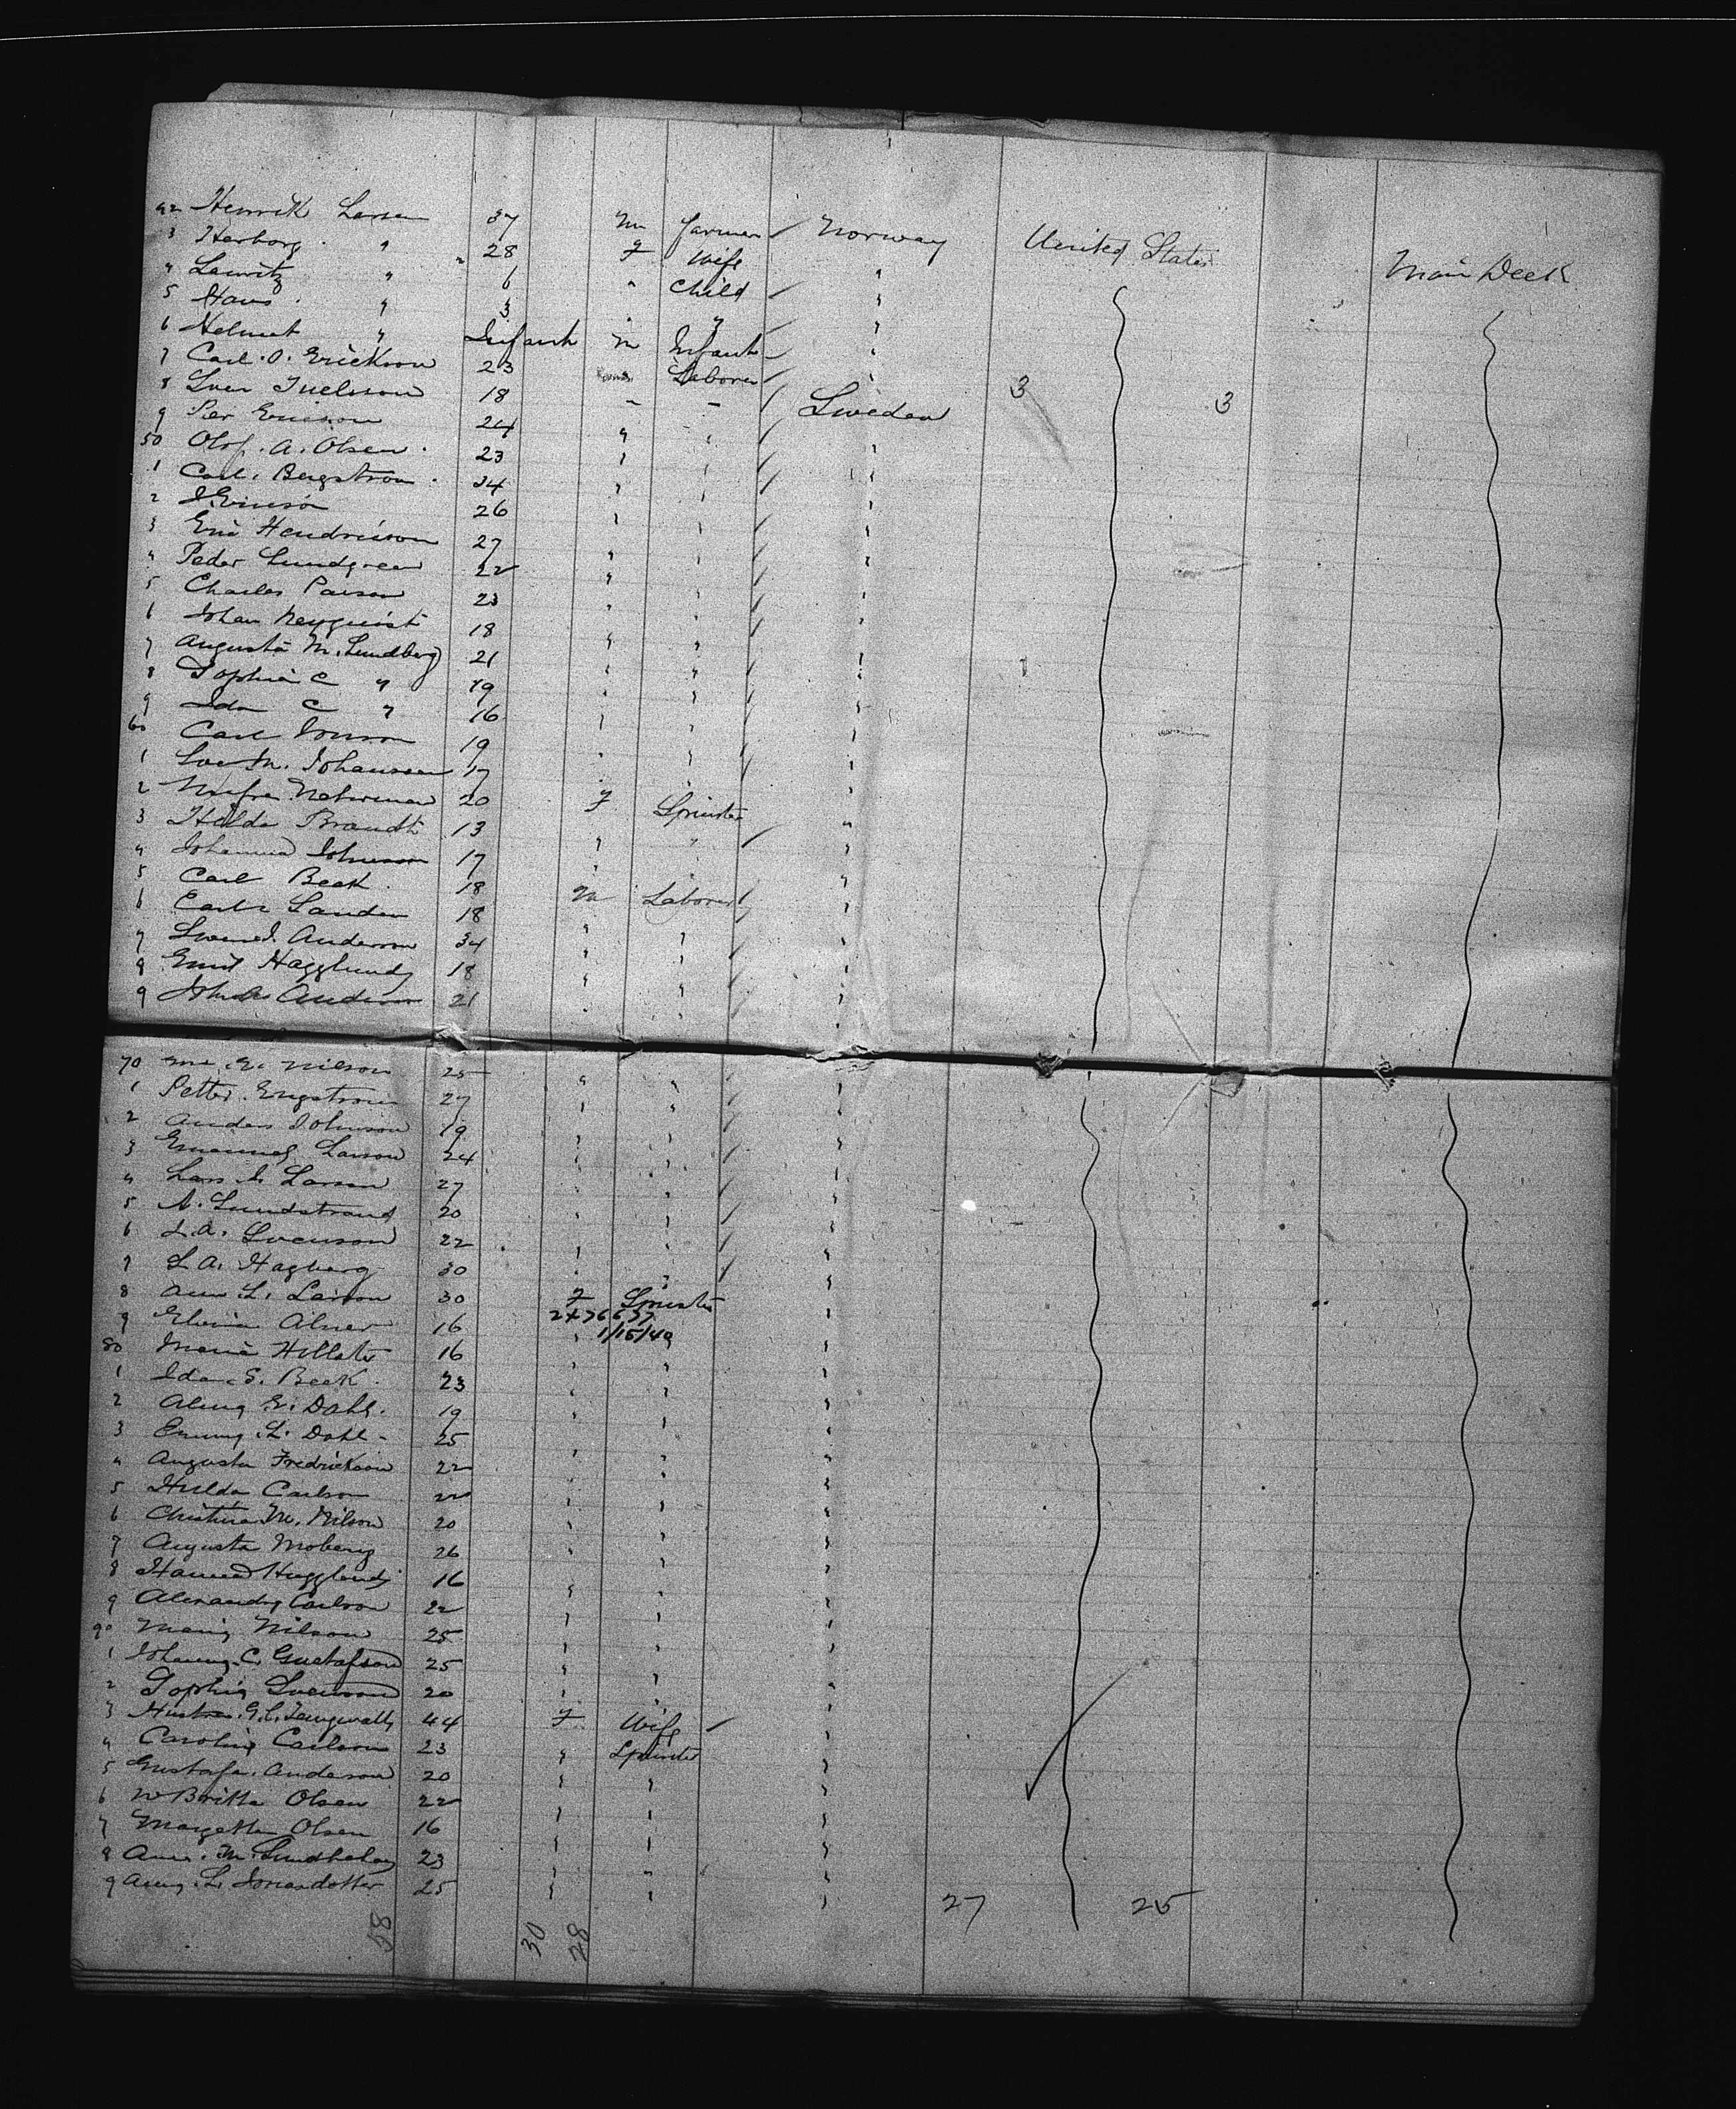 42 Henrik Larsen 37 m farmer Norway United States Main Deck
3 Herborg " 28 F Wife "
4 Lauritz " 6 " Child "
5 Hans " 3 " " "
6 Helmut " Infant m Infant "
7 Carl O. Erickson 23 Laborer "
8 Sven 18 " " Sweden 3 3
9 Per Ericson 24 " " "
50 Olof A. Olsen 23 " " "
1 Carl Bergstrom 34 " " "
2 26 " " "
3 Eric Hendrickson 27 " " "
4 Peder Lundgreen 22 " " "
5 Charles 23 " " "
6 Johan 18 " " "
7 Augusta M. Lundberg 21 " " "
8 Sophia C " 19 " " "
9 Ida C " 16 " " "
60 Carl 19 " " "
1 M. Johansson 17 " " "
2 20 F Spinster "
3 Hilda Brandt 13 " " "
4 Johanna Johnson 17 " " "
5 Carl Beck 18 m Laborer "
6 18 " " "
7 Anderson 34 " " "
8 Emil Hagglund 18 " " "
9 21 " " "
70 Nilson 25 " " "
1 Petter Engstrom 27 " " "
2 Anders Johnson 19 " " "
3 Emanuel Larson 24 " " "
4 Lars J. Larson 27 " " "
5 A. Lundstrand 20 " " "
6 Svenson 22 " " "
7 L. A. Hagberg 30 " " "
8 Ann L. Larson 30 F Spinster "
9 16 2476637 "
1/15/40
80 Maria 16 " " "
1 Ida S. Beck 23 " " "
2 E. Dahl 19 " " "
3 L. Dahl 25 " " "
4 Augusta Fredrickson 22 " " "
5 Hulda Carlson 22 " " "
6 Christina M. Nilson 20 " " "
7 Augusta Moberg 26 " " "
8 Hagglund 16 " " "
9 Carlson 22 " " "
90 Maria Nilson 25 " " "
1 Johanna C. Gustafson 25 " " "
2 Sophia Svenson 20 " " "
3 44 F Wife "
4 Carolina Carlson 23 " Spinster "
5 Gustafa Anderson 20 " " "
6 Britta Olsen 22 " " "
7 Margetta Olsen 16 " " "
8 Anna M. 23 " " "
9 Anna L. Jonasdotter 25 " " " 27 25
58 30 28